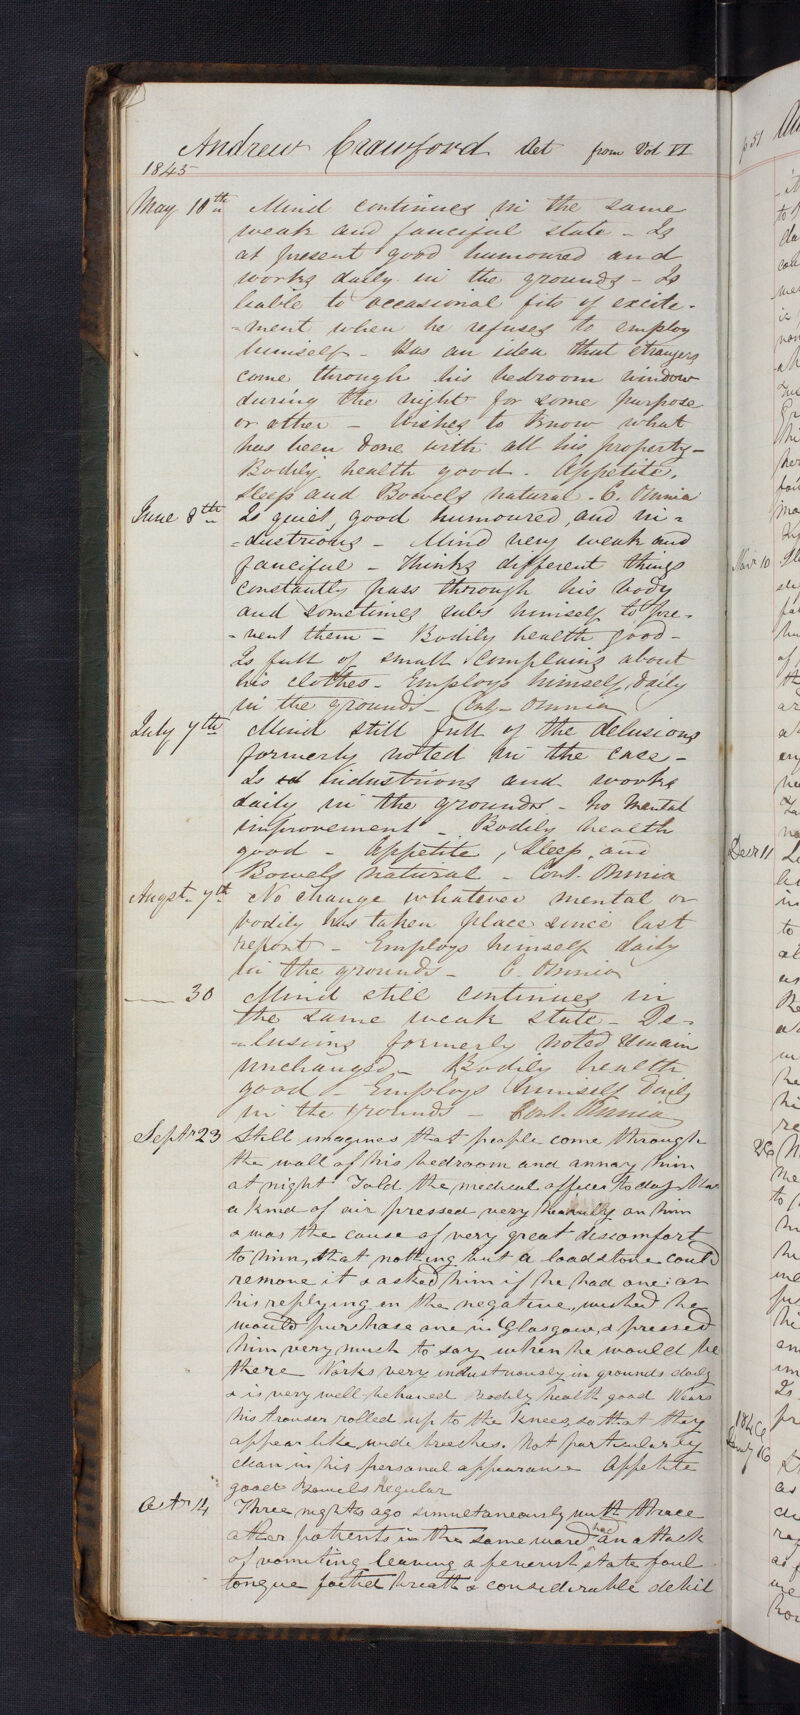 Andrew Crawford Aet from Vol VI
1845
May 10th Mind continues in the same
weak and fanciful state - Is
at present good humoured and
works daily in the grounds - Is
liable to occasional fits of excite-
-ment when he refuses to employ
himself - Has an idea that strangers
come through his bedroom window
during the night for some purpose
or other - Wishes to know what
has been done with all his property -
Bodily health good. Appetite,
sleep and Bowels natural - C. Omnia
June 8th Is quiet, good humoured, and in=
=dustrious - Mind very weak and
fanciful - Thinks different things
constantly pass through his body
and sometimes rubs himself to pre-
-vent them - Bodily health good -
Is full of small complaints about
his clothes - Employs himself daily
in the grounds - Con. Omnia
July 7th Mind still full of the delusions
formerly noted in the case -
Is industrious and works
daily in the grounds - No mental
improvement - Bodily health
good - Appetite, Sleep, and
Bowels natural - Cont. Omnia
Augst. 7th No change whatever mental or
bodily has taken place since last
report - Employs himself daily
in the grounds - C. Omnia
30 Mind still continues in
the same weak state - De-
-lusions formerly noted remain
unchanged - Bodily health
good - Employs himself daily
in the grounds - Cont. Omnia
Septr 23 Still imagines that people come through
the wall of his bedroom and annoy him
at night. Told the medical officer today that
a kind of air pressed very heavily on him
& was the cause of very great discomfort
to him, that nothing but a loadstone could
remove it & asked him if he had one: on
his replying in the negative, wished he
would purchase one in Glasgow, & pressed
him very much to say when he would be
there Works very industriously in grounds daily
& is very well behaved Bodily health good Wears
his trouser rolled up to the knees, so that they
appear like wide breeches. Not particularly
clean in his personal appearance Appetite
good Bowels regular
Octr 14 Three nights ago simultaneously with three
other patients in the same ward had an attack
of vomiting leaving a feverish state foul
tongue foetid breath & considerable debil
p 51
Novr 10
Decr 11
26
1846
Jany 16